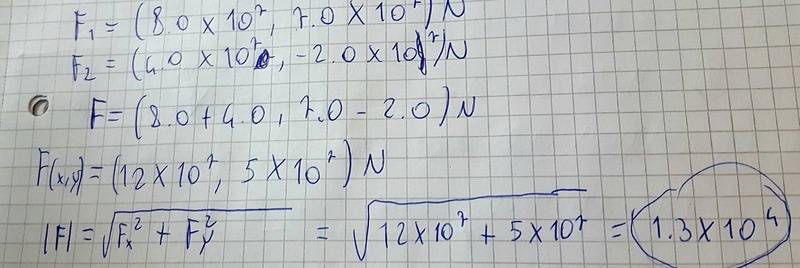 F₁ = (8.0 × 10⁷, 7.0 × 10⁷) N
F₂ = (4.0 × 10⁷, -2.0 × 10⁷) N
F = (8.0 + 4.0, 7.0 - 2.0) N
F(x,y) = (12 × 10⁷, 5 × 10⁷) N
|F| = √(Fx² + Fy²) = √(12×10⁷ + 5×10⁷) = 1.3 × 10⁴